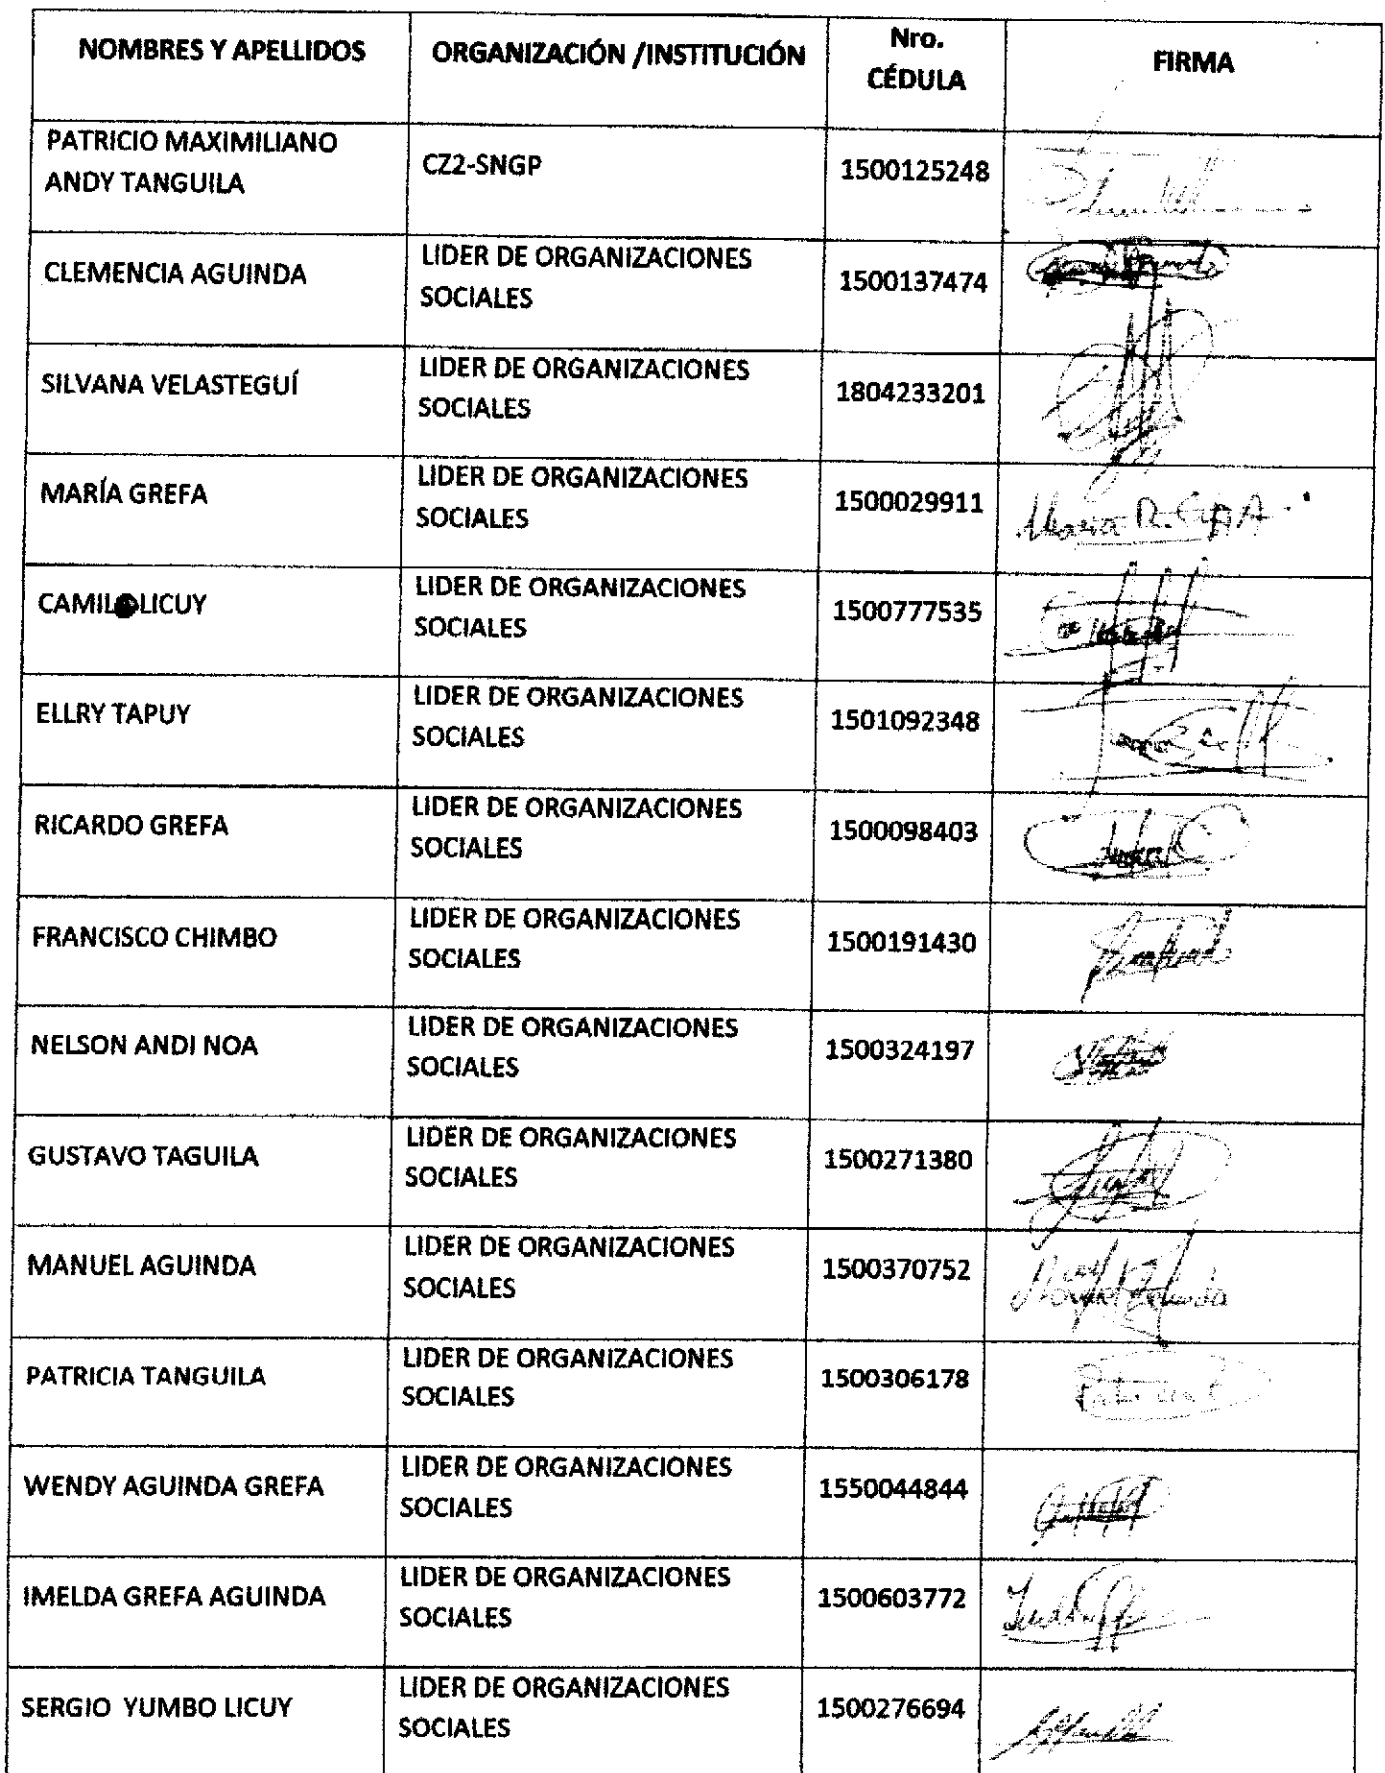 NOMBRES Y APELLIDOS
ORGANIZACIÓN /INSTITUCIÓN
Nro.
CÉDULA
FIRMA
PATRICIO MAXIMILIANO
ANDY TANGUILA
CZ2-SNGP
1500125248
CLEMENCIA AGUINDA
LIDER DE ORGANIZACIONES
SOCIALES
1500137474
SILVANA VELASTEGUÍ
LIDER DE ORGANIZACIONES
SOCIALES
1804233201
MARÍA GREFA
LIDER DE ORGANIZACIONES
SOCIALES
1500029911
Maria R.
CAMILO LICUY
LIDER DE ORGANIZACIONES
SOCIALES
1500777535
ELLRY TAPUY
LIDER DE ORGANIZACIONES
SOCIALES
1501092348
RICARDO GREFA
LIDER DE ORGANIZACIONES
SOCIALES
1500098403
FRANCISCO CHIMBO
LIDER DE ORGANIZACIONES
SOCIALES
1500191430
NELSON ANDI NOA
LIDER DE ORGANIZACIONES
SOCIALES
1500324197
GUSTAVO TAGUILA
LIDER DE ORGANIZACIONES
SOCIALES
1500271380
MANUEL AGUINDA
LIDER DE ORGANIZACIONES
SOCIALES
1500370752
PATRICIA TANGUILA
LIDER DE ORGANIZACIONES
SOCIALES
1500306178
WENDY AGUINDA GREFA
LIDER DE ORGANIZACIONES
SOCIALES
1550044844
IMELDA GREFA AGUINDA
LIDER DE ORGANIZACIONES
SOCIALES
1500603772
SERGIO YUMBO LICUY
LIDER DE ORGANIZACIONES
SOCIALES
1500276694